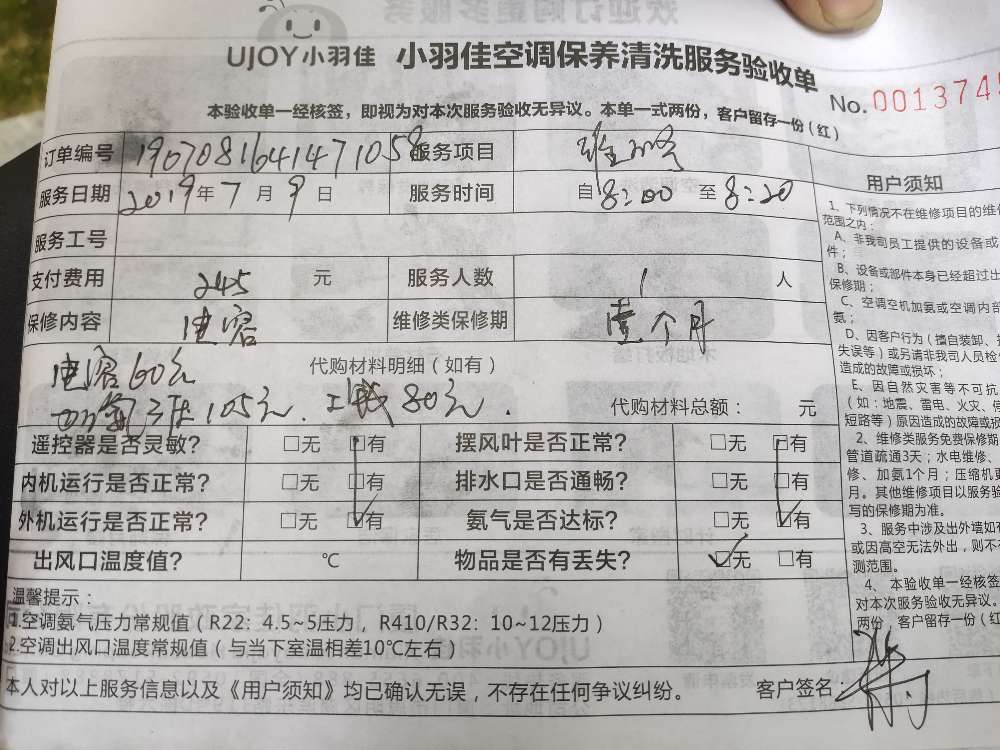 UJOY小羽佳 小羽佳空调保养清洗服务验收单
No.001374
本验收单一经核签，即视为对本次服务验收无异议。本单一式两份，客户留存一份（红）
订单编号 1907081641471058 服务项目
服务日期 2019年7月9日 服务时间 自8:00至8:20
服务工号
支付费用 245元 服务人数 1人
保修内容 电容 维修类保修期 壹个月
电容60元 代购材料明细（如有）
105元. 80元. 代购材料总额： 元
遥控器是否灵敏？ □无 □有 摆风叶是否正常？ □无 □有
内机运行是否正常？ □无 □有 排水口是否通畅？ □无 □有
外机运行是否正常？ □无 □有 氨气是否达标？ □无 □有
出风口温度值？ ℃ 物品是否有丢失？ □无 □有
温馨提示：
1.空调氨气压力常规值（R22：4.5~5压力，R410/R32：10~12压力）
2.空调出风口温度常规值（与当下室温相差10℃左右）
本人对以上服务信息以及《用户须知》均已确认无误，不存在任何争议纠纷。 客户签名
用户须知
1、下列情况不在维修项目的维
范围之内：
A、非我司员工提供的设备或
件；
B、设备或部件本身已经超过出
保修期；
C、空调空机加氨或空调内部
氨；
D、因客户行为（擅自装卸、
失误等）或另请非我司人员检
造成的故障或损坏；
E、因自然灾害等不可抗
（如：地震、雷电、火灾、
短路等）原因造成的故障或损
2、维修类服务免费保修期
管道疏通3天；水电维修、
修、加氨1个月；压缩机
月。其他维修项目以服务验
写的保修期为准。
3、服务中涉及出外墙如
或因高空无法外出，则不
测范围。
4、本验收单一经核签
对本次服务验收无异议。
两份，客户留存一份（红